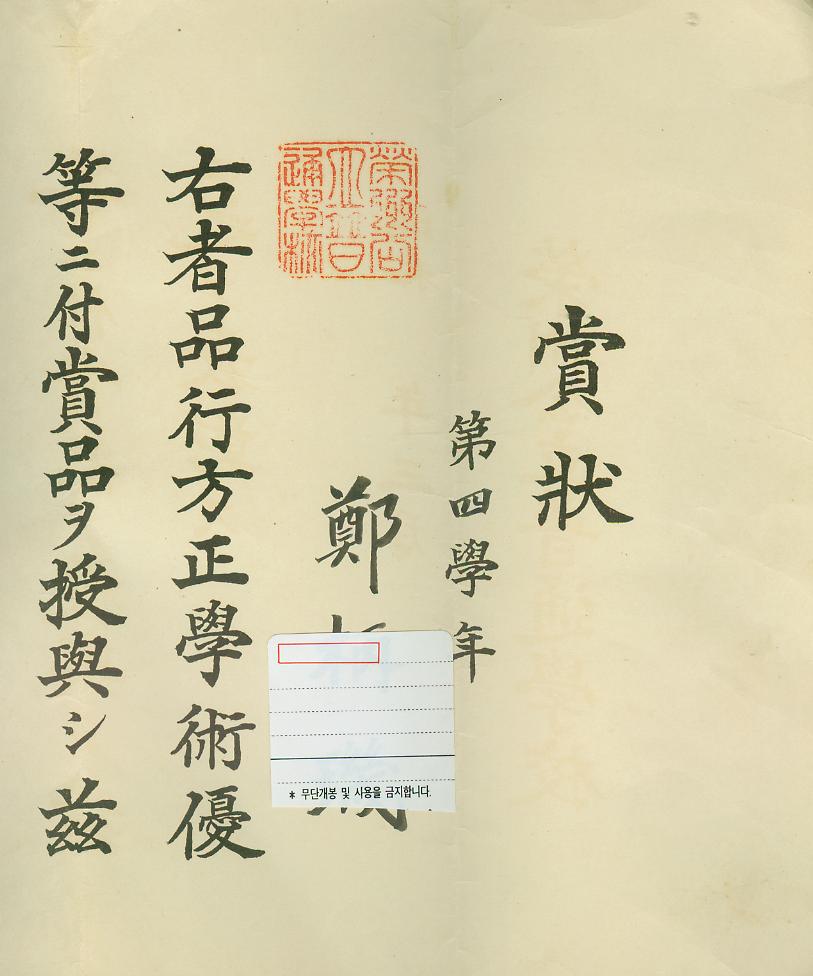 賞狀
第四學年
鄭
榮
公
立普
通學校
右者品行方正學術優
等ニ付賞品ヲ授與シ茲
* 무단개봉 및 사용을 금지합니다.